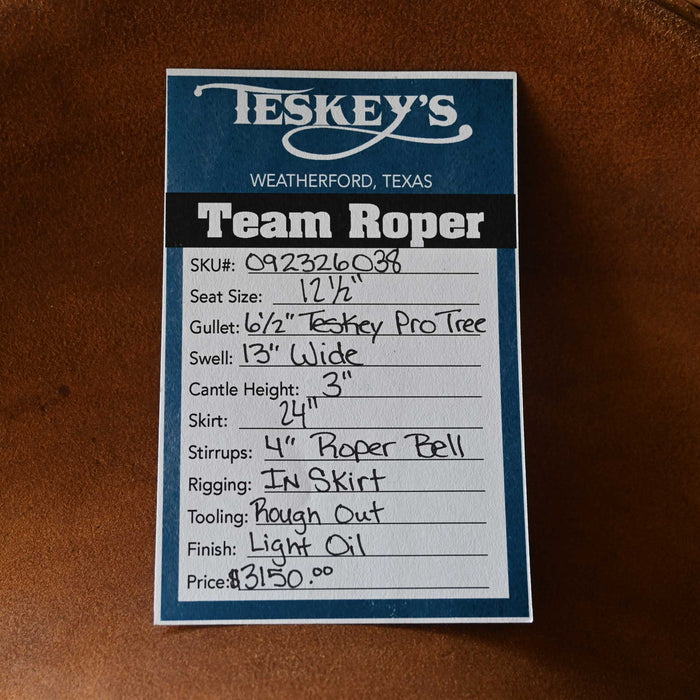 TESKEY'S
WEATHERFORD, TEXAS
Team Roper
SKU#: 092326038
Seat Size: 12 1/2"
Gullet: 6 1/2" Teskey Pro Tree
Swell: 13" Wide
Cantle Height: 3"
Skirt: 24"
Stirrups: 4" Roper Bell
Rigging: IN Skirt
Tooling: Rough Out
Finish: Light Oil
Price: $3150.00